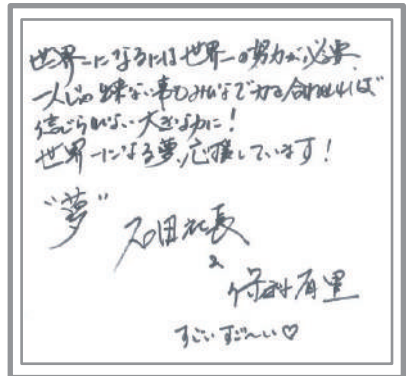 世界一になるには世界一の努力が必要
一人じゃ出来ない事もみんなで力を合わせれば
信じられない大きな力に！
世界一になる夢、応援しています！
“夢”
石田社長
&
保科有里
すごいすご〜い♡